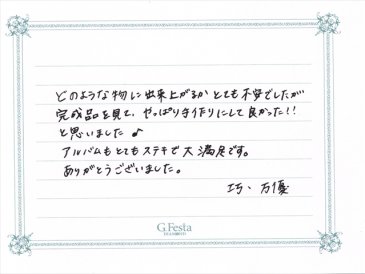 どのような物に出来上がるか とても不安でしたが
完成品を見て、やっぱり手作りにして良かった!!
と思いました♪
アルバムもとてもステキで大満足です。
ありがとうございました。
巧・万優
G.Festa